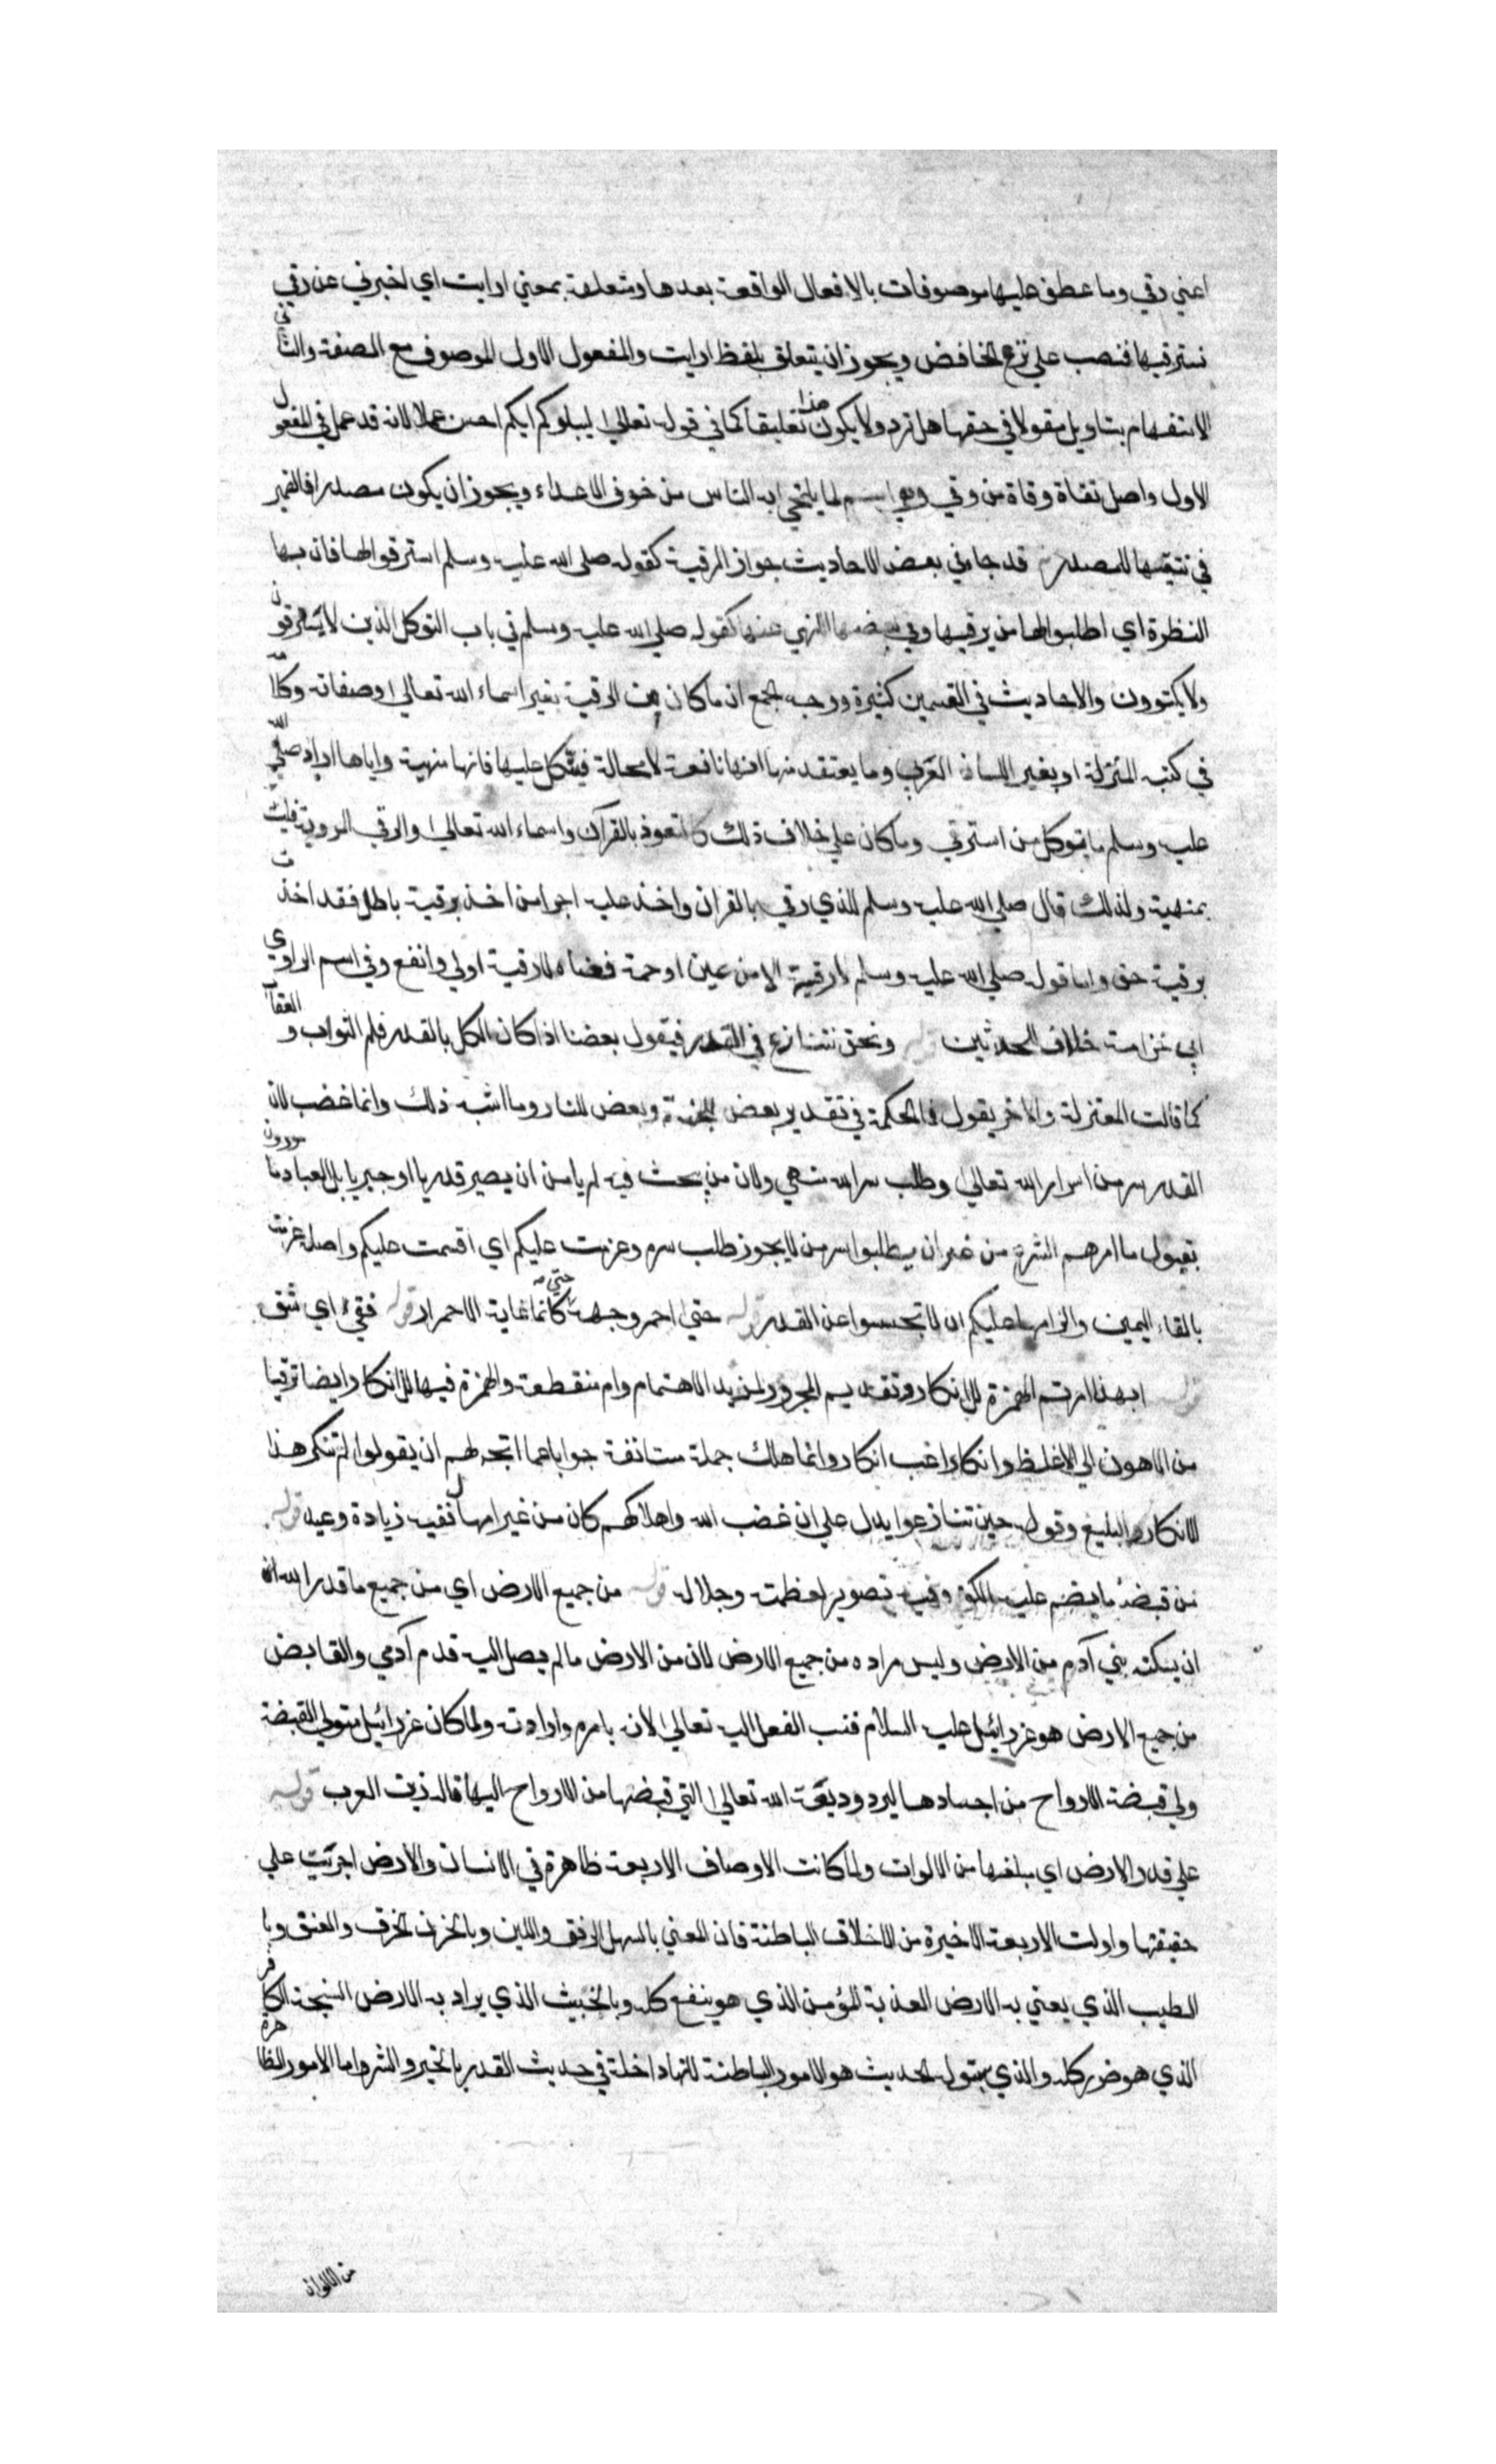 اعني رقي وما عطف عليها موصوفات بالافعال الواقعة بعدها ومتعلقة بمعني ارايت اي اخبرني عن رقي
نسترقيها فنصب علي نزع الخافض ويجوز ان يتعلق بلفظ ارايت والمفعول الاول الموصوف مع الصفة والثاني
الاستفهام بتاويل مقولا في حقها هل ترد ولا يكون هذا تعليقا كما في قوله تعالي ليبلوكم ايكم احسن عملا لانه قد عمل في المفعول
الاول واصل تقاة وقاة من وقي وهي اسم لما يلتجي به الناس من خوف الاعداء ويجوز ان يكون مصدرا فالضمير
في نتقيها للمصدر قد جا في بعض الاحاديث جواز الرقية كقوله صلي الله عليه وسلم استرقوا لها فان بها
النظرة اي اطلبوا لها من يرقيها وفي بعضها النهي عنها كقوله صلي الله عليه وسلم في باب التوكل الذين لا يسترقون
ولا يكتوون والاحاديث في القسمين كثيرة ووجه الجمع ان ما كان من الرقية بغير اسماء الله تعالي وصفاته وكلامه
في كتبه المنزلة او بغير اللسان العربي وما يعتقد منها انها نافعة لا محالة فيتكل عليها فانها منهية واياها اراد صلي الله
عليه وسلم ما توكل من استرقي وما كان علي خلاف ذلك كالتعوذ بالقرآن واسماء الله تعالي والرقي المروية فليست
بمنهية ولذلك قال صلي الله عليه وسلم للذي رقي بالقران واخذ عليه اجرا من اخذ برقية باطل فقد اخذت
برقية حق واما قوله صلي الله عليه وسلم لا رقية الا من عين او حمة فمعناه لا رقية اولي وانفع وفي اسم الراوي
ابي خزامة خلاف المحدثين قوله ونحن نتنازع في القدر فيقول بعضنا اذا كان الكل بالقدر فلم الثواب والعقاب
كما قالت المعتزلة والاخر يقول فما الحكمة في تقدير بعض للجنة وبعض للنار وما اشبه ذلك وانما غضب لان
القدر سر من اسرار الله تعالي وطلب سر الله منهي ولان من يبحث فيه لم يامن ان يصير قدريا او جبريا بل العباد مامورون
بقبول ما امرهم الشرع من غير ان يطلبوا سر من لا يجوز طلب سره وعزمت عليكم اي اقسمت عليكم واصله عزمت
بالقاء اليمين والزامها عليكم ان لا تبحثوا عن القدر قوله حتي احمر وجهه حتي كانما غاية الاحمرار قوله ففقئ اي شق
قوله ابهذا امرتم الهمزة للانكار وتقديم المجرور لمزيد الاهتمام وام منقطعة والهمزة فيها للانكار ايضا ترقيا
من الاهون الي الاغلظ وانكارا غب انكار وانما هلك جملة مستانفة جوابا عما اتجه لهم ان يقولوا لم تنكر هذا
الانكار البليغ وقوله حين تنازعوا يدل علي ان غضب الله واهلاكهم كان من غير امهال ففيه زيادة وعيد قوله
من قبضة ما يضم عليه الكف وفيه تصوير لعظمته وجلاله قوله من جميع الارض اي من جميع ما قدر الله
ان يسكنه بني آدم من الارض وليس مراده من جميع الارض لان من الارض ما لم يصل اليه قدم آدمي والقابض
من جميع الارض هو عزرائيل عليه السلام فنسب الفعل اليه تعالي لانه بامره وارادته ولما كان عزرائيل متولي القبضة
ولي قبضة الارواح من اجسادها ليرد وديعة الله تعالي التي قبضها من الارواح اليها قاله زين العرب قوله
علي قدر الارض اي مبلغها من الالوان ولما كانت الاوصاف الاربعة ظاهرة في الانسان والارض اجريت علي
حقيقتها واولت الاربعة الاخيرة من الاخلاق الباطنة فان المعني بالسهل الرفق واللين وبالحزن الخرق والعنف وبا
الطيب الذي يعني به الارض العذبة المؤمن الذي هو ينفع كله وبالخبيث الذي يراد به الارض السبخة الكافر
الذي هو ضر كله والذي الحديث هو الامور الباطنة لانها داخلة في حديث القدر بالخير والشر واما الامور الظاهرة
من الالوان